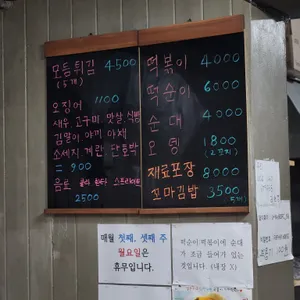 모듬튀김 4500
(5개)
오징어 1100
새우 고구마 맛살 식빵
김말이 야끼 야채
소세지 계란 단호박
= 900
음료 콜라 환타 스프라이트
2500
떡볶이 4000
떡순이 6000
순대 4000
오뎅 1800
(2꼬치)
재료포장 8000
꼬마김밥 3500
(5개)
매월 첫째, 셋째 주
월요일은
휴무입니다.
떡순이 떡볶이에 순대
가 조금 들어가 있는
것입니다 (내장 X)